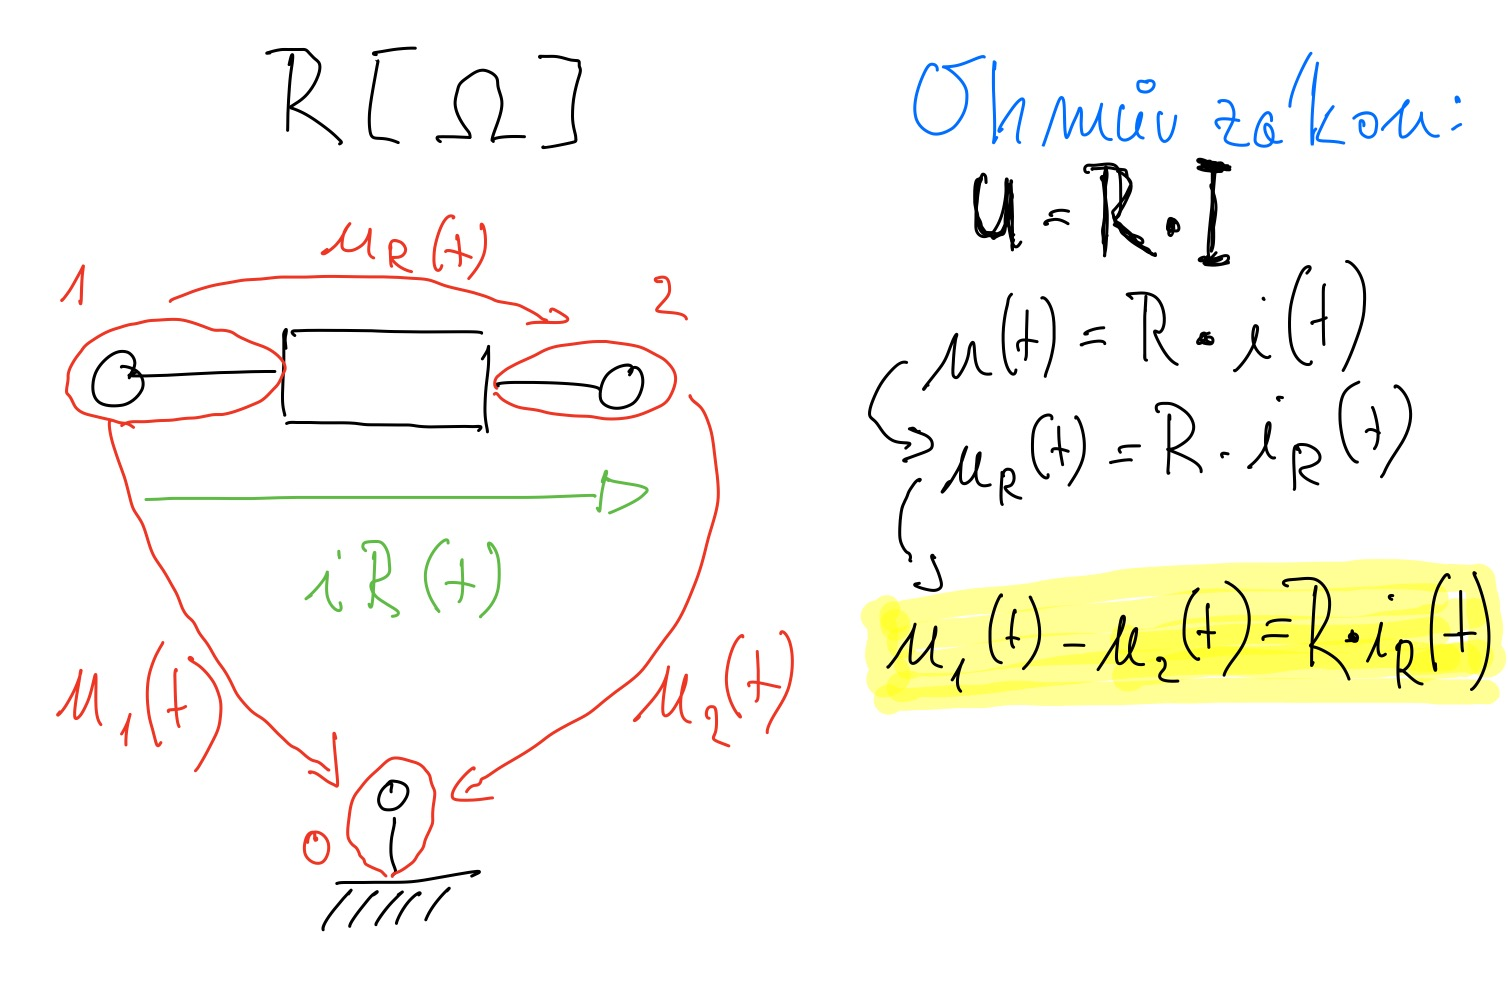 R [Ω]
u_R(t)
1
2
i_R(t)
u_1(t)
u_2(t)
0
Ohmův zákon:
U = R · I
u(t) = R · i(t)
u_R(t) = R · i_R(t)
u_1(t) - u_2(t) = R · i_R(t)